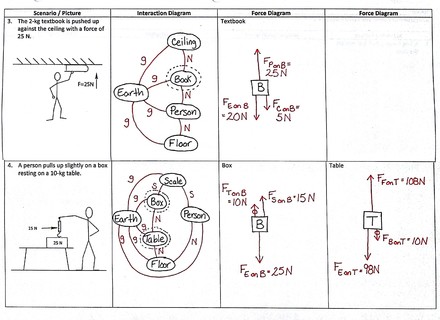 Scenario / Picture
Interaction Diagram
Force Diagram
Force Diagram
3. The 2-kg textbook is pushed up
against the ceiling with a force of
25 N.
F=25N
Ceiling
g
N
g
Book
Earth
g
N
Person
g
N
Floor
Textbook
F P on B =
25N
B
F E on B
=20N
F C on B =
5N
4. A person pulls up slightly on a box
resting on a 10-kg table.
15 N
25 N
g
Scale
S
S
Box
g
Earth
N
Person
g
g
Table
g
N
N
Floor
Box
F T on B
=10N
F S on B =15N
B
F E on B =25N
Table
F F on T =108N
T
F B on T =10N
F E on T =98N